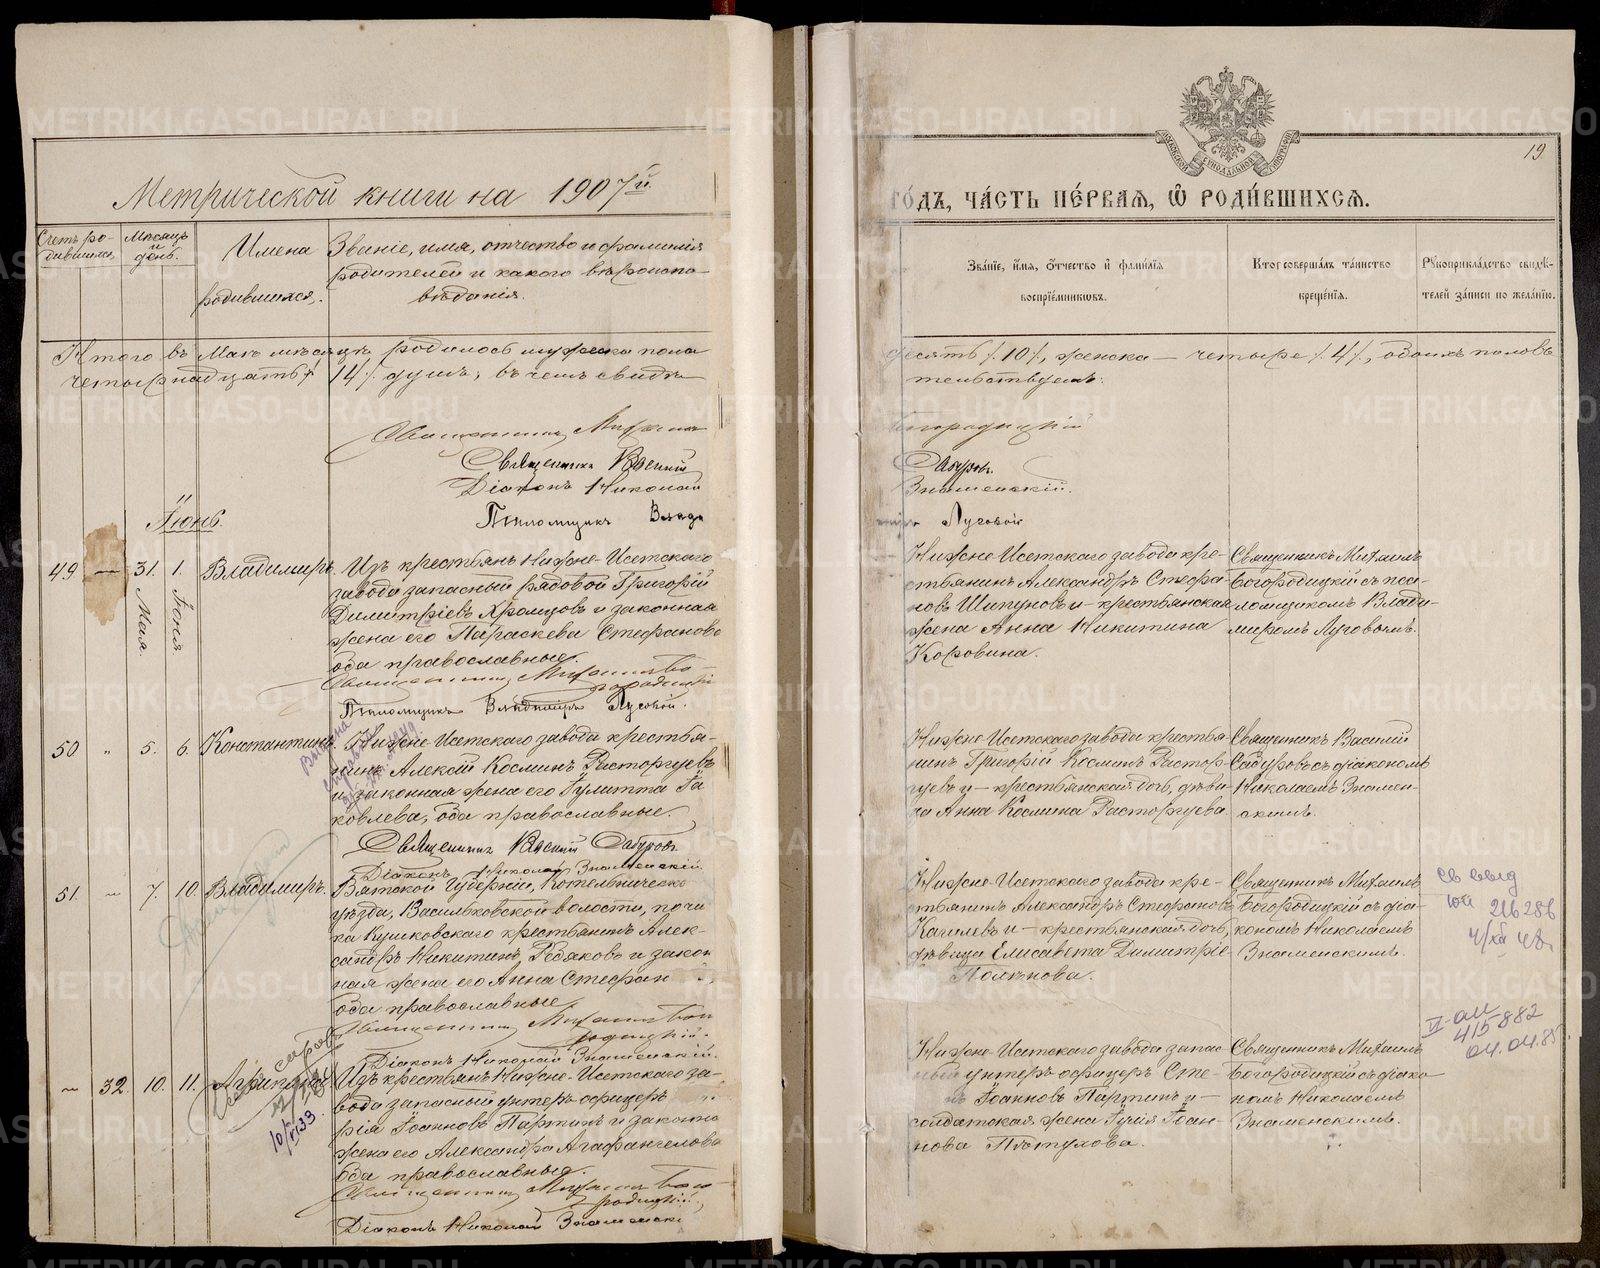 Метрической книги на 1907й
Счетъ ро-
дившихся.
Мѣсяцъ
и
день.
Имена
родившихся.
Званіе, имя, отчество и фамилія
родителей и какого вѣроиспо-
вѣданія.
Итого въ Маѣ мѣсяцѣ родилось мужска пола
четырнадцать /14/ душъ, въ чемъ свидѣ
Священникъ Михаилъ
Священникъ Василій
Діаконъ Николай
Псаломщикъ Влади
Іюнь.
49 — 31. 1. Владимиръ.
Мая.
Іюня.
Изъ крестьянъ Нижне-Исетскаго
завода запасный рядовой Григорій
Димитріевъ Хромцовъ и законная
жена его Параскева Стефанова
оба православные.
Священникъ Михаилъ Бо-
городицкій
Псаломщикъ Владимиръ Луговой.
50 " 5. 6. Константинъ.
Нижне-Исетскаго завода крестья-
нинъ Алексій Косминъ Расторгуевъ
и законная жена его Іулитта Іа
ковлева, оба православные.
Священникъ Василій Сабуровъ
Діаконъ Николай Знаменскій.
51. — 7. 10. Владимиръ.
Вятской губерніи, Котельническо
уѣзда, Васильковской волости, почи
ка Кушковскаго крестьянинъ Алек-
сандръ Никитинъ Редяковъ и закон
ная жена его Анна Стефан
оба православные
Священникъ Михаилъ Бого
родицкій.
Діаконъ Николай Знаменскій.
— 32. 10. 11. Агрипина
10/VI 33
Изъ крестьянъ Нижне-Исетскаго за-
вода запасный унтеръ-офицеръ
рій Іоанновъ Партинъ и законна
жена его Александра Агафангелова
оба православные.
Священникъ Михаилъ Бого-
родицкій,
Діаконъ Николай Знаменскі
19
МОСКОВСКОЙ СѴНОДАЛЬНОЙ ТИПОГРАФІИ
ГО́ДЪ, ЧА́СТЬ ПЕ́РВАѦ, Ѡ҆ РОДИ́ВШИХСѦ.
Зва́нїе, и҆́мя, ѻ҆́тчество и҆ фами́лїя
воспрїе́мникѡвъ.
Кто̀ соверша́лъ та́инство
креще́нїя.
Рꙋкоприкла́дство свидѣ́-
телей за́писи по жела́нїю.
десять /10/, женска — четыре /4/, обоихъ половъ
тельствуемъ:
Богородицкій
Сабуровъ.
Знаменскій.
Луговой
Нижне-Исетскаго завода кре-
стьянинъ Александръ Стефа-
новъ Шипуновъ и — крестьянская
жена Анна Никитина
Коровина.
Священникъ Михаилъ
Богородицкій съ пса-
ломщикомъ Влади-
миромъ Луговымъ.
Нижне-Исетскаго завода крестья-
нинъ Григорій Косминъ Растор-
гуевъ и — крестьянская дочь, дѣви-
ца Анна Космина Расторгуева
Священникъ Василій
Сабуровъ съ діакономъ
Николаемъ Знамен-
скимъ.
Нижне-Исетскаго завода кре-
стьянинъ Александръ Стефановъ
Кагилевъ и — крестьянская дочь,
дѣвица Елисавета Димитріе-
Поленова.
Священникъ Михаилъ
Богородицкій съ діа-
кономъ Николаемъ
Знаменскимъ.
св выд
юа 216286
4/XII 48г
Нижне-Исетскаго завода запас-
ный унтеръ-офицеръ Сте-
Іоанновъ Партинъ и —
солдатская жена Іулія Іоан-
нова Пѣтухова.
Священникъ Михаилъ
Богородицкій съ діако
номъ Николаемъ
Знаменскимъ.
VI-аи
415882
04.04.85г.